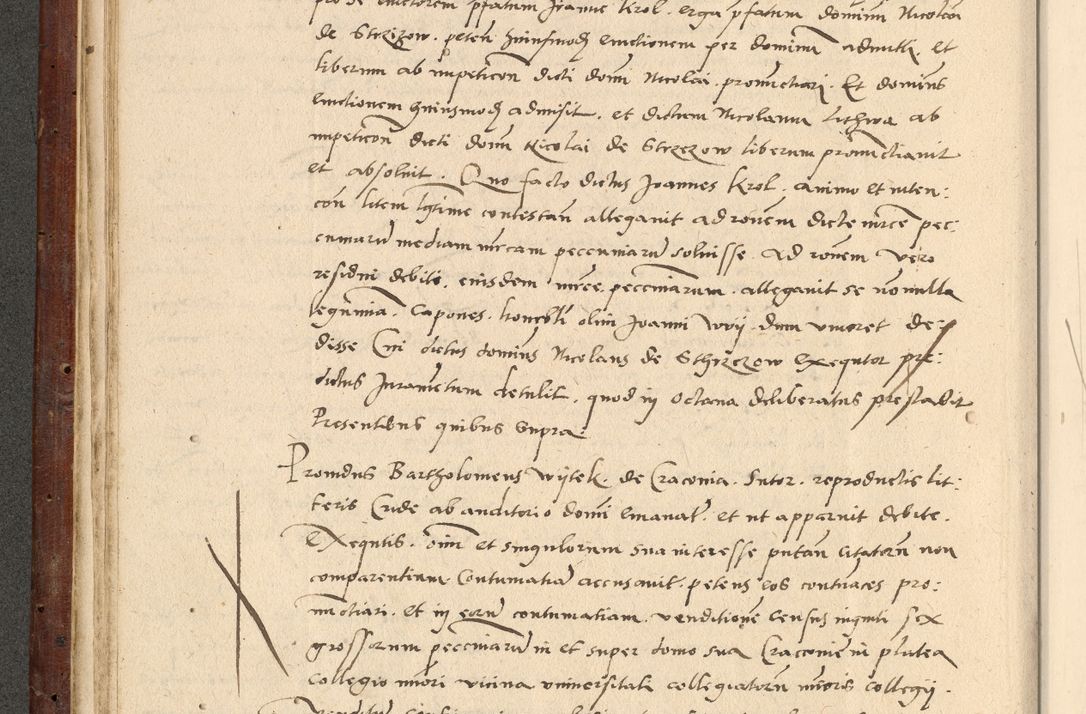 pro se emctorem pfatum Joanne Krol. erga pfatum dominum Nicolaum
de Strzizow. petens huiusmodi emctionem per dominum admitti. Et
liberum ab impeticon dicti domi Nicolai. pronunctiari. Et dominus
emctionem huiusmodi admisit. et dictum Nicolaum Lithwa ab
impeticon dicti domi Nicolai de Strzezow liberum pronunctiavit
et absoluit. Quo facto dictus Joannes Krol. animo et inten:
con litem lgtime contestan allegauit ad ronem dicte mrce pec:
cuniaru mediam mrcam peccuniaru soluisse. Ad ronem vero
residui debiti. eiusdem mrce. peccuniarum. allegauit se nonnulla
legumina. Capones. honesti olim Joanni Wvij. dum viueret de:
disse Cui dictus dominus Nicolaus de Sthrzezow exequtor pre:
dictus Juramctum detulit. quod in octaua deliberatus prestabit
Presentibus quibus supra
Prouidus Bartholomeus Wijtek. de Cracouia. Sutor. reproductis lit:
teris Crude ab auditorio domi emanat. et ut apparuit debite.
Exequtis. oim et singulorum sua interesse putan citatoru non
comparentium Contumatia accusauit. petens eos contuaces pro:
nunctiari. et in eoru contumatiam. venditione Census inquili sex
grossorum peccuniaru in et super domo sua Cracouie in platea
Collegio minori vicina vniuersitati collegiatoru minoris collegij.